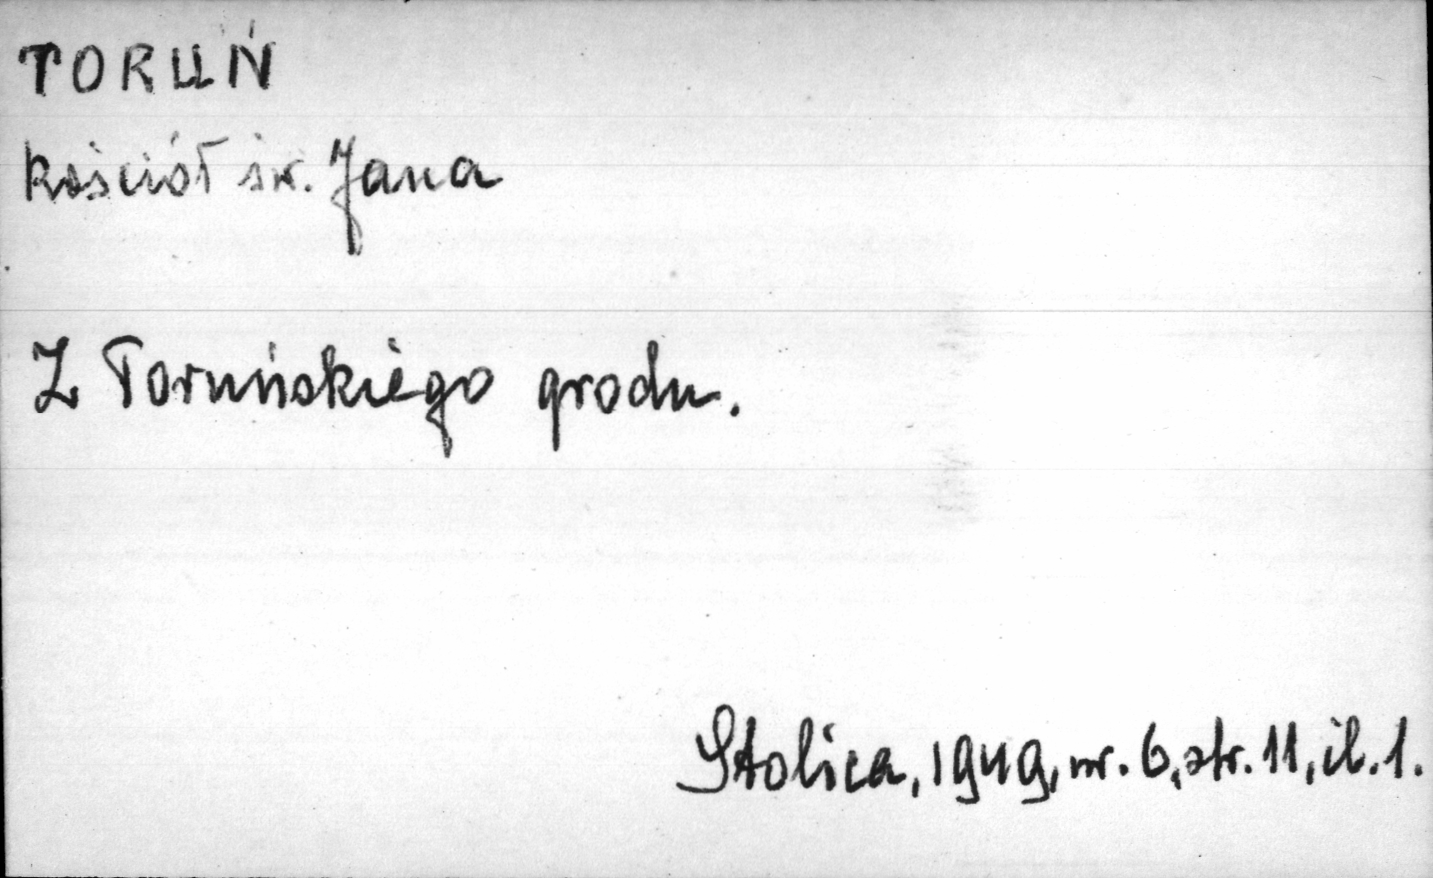 TORUŃ
kościół św. Jana
Z Toruńskiego grodu.
Stolica, 1949, nr. 6, str. 11, il. 1.